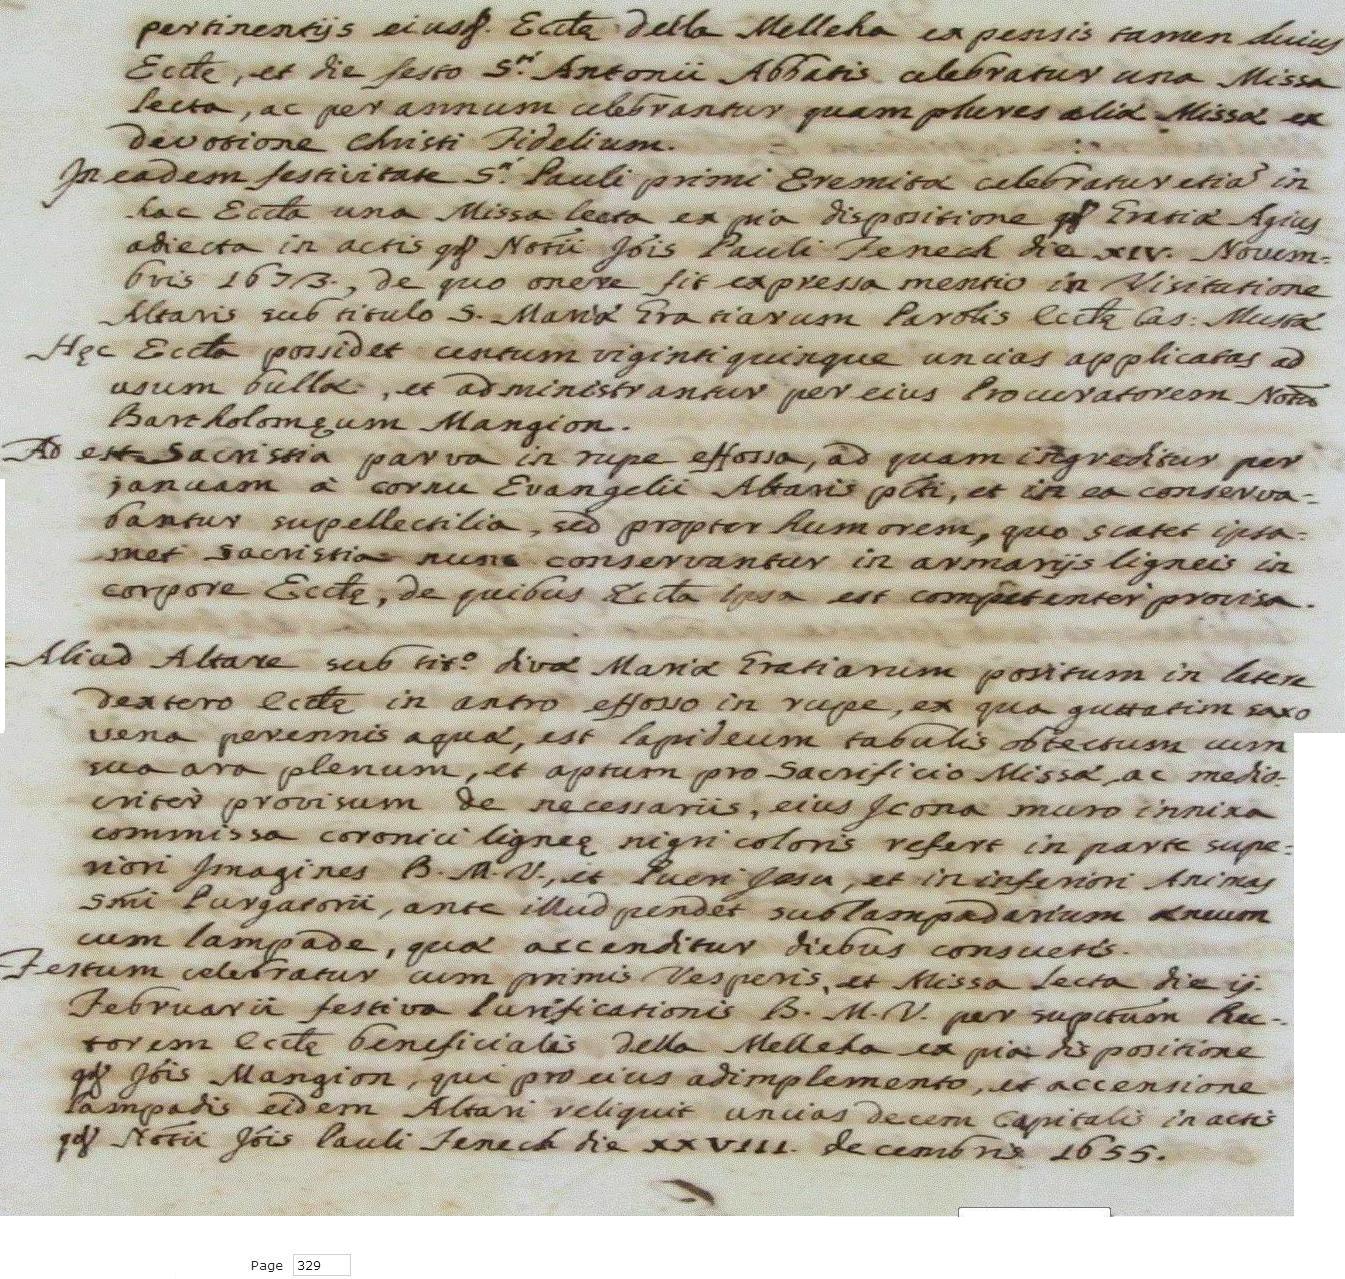 pertinentijs eiusđ. Ecclę della Melleha expensis tamen huius
Ecclę, et die festo S.ti Antonii Abbatis celebratur una Missa
lecta, ac per annum celebrantur quam plures aliæ Missæ ex
devotione Christi Fidelium.
In eadem festivitate S.ti Pauli primi Eremitæ celebratur etiã in
hac Eccła una Missa lecta ex pia dispositione qđ Gratiæ Agius
adiecta in actis qđ Notii Jõis Pauli Fenech die XIV. Novem=
bris 1673., de quo onere fit expressa mentio in Visitatione
Altaris sub titulo S. Mariæ Gratiarum Parolis Ecclę Cas: Mustæ
Hęc Eccła possidet centum viginti quinque uncias applicatas ad
usum bullæ, et administrantur per eius Procuratorem Notũ
Bartholomęum Mangion.
Ad est Sacristia parva in rupe effossa, ad quam ingreditur per
januam à cornu Evangelii Altaris pťi, et in ea conserva=
bantur supellectilia, sed propter humorem, quo scatet ipsa=
met Sacristia nunc conservantur in armarijs ligneis in
corpore Ecclę, de quibus Eccła ipsa est competenter provisa.
Aliud Altare sub tit.o divæ Mariæ Gratiarum positum in latere
dextero Ecclę in antro effosso in rupe, ex qua guttatim saxo
vena perennis aquæ, est lapideum tabulis obtectum cum
sua ara plenum, et aptum pro Sacrificio Missæ, ac medio=
criter provisum de necessariis, eius Jcona muro innixa
commissa coronici ligneę nigri coloris refert in parte supe=
riori Jmagines B. M. V., et Pueri Jesu, et in inferiori Animas
Smi Purgatorii, ante illud pendet sublampadarium æneum
cum lampade, quæ accenditur diebus consuetis.
Festum celebratur cum primis Vesperis, et Missa lecta die ij.
Februarii festiva Purificationis B. M. V. per supttum Rec=
torem Ecclę beneficialis della Melleha ex pia dispositione
qđ Jõis Mangion, qui pro eius adimplemento, et accensione
lampadis eidem Altari reliquit uncias decem Capitalis in actis
qđ Notii Jõis Pauli Fenech die XXVIII. decembris 1655.
Page 329